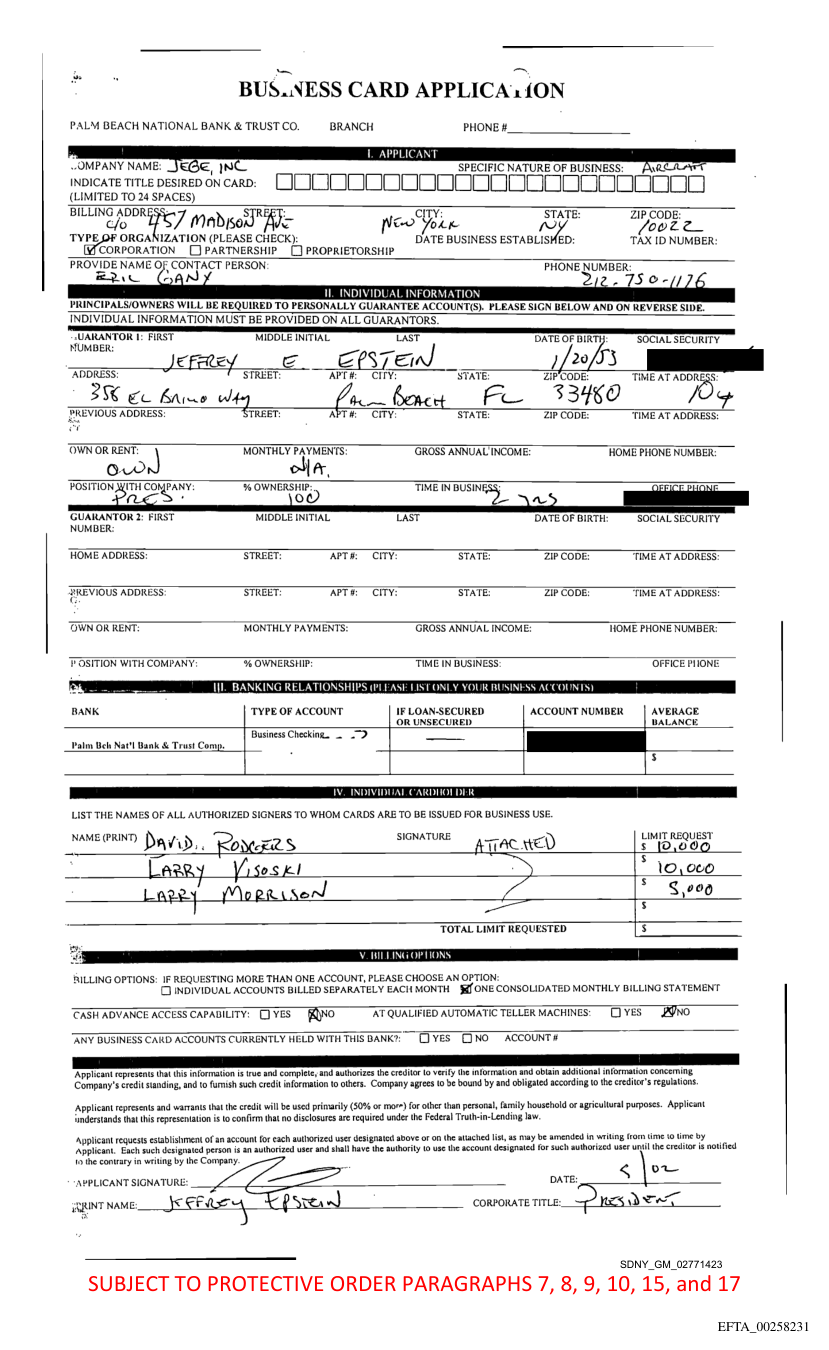 BUSINESS CARD APPLICATION
PALM BEACH NATIONAL BANK & TRUST CO. BRANCH PHONE #
I. APPLICANT
COMPANY NAME: JEGE, INC SPECIFIC NATURE OF BUSINESS: AIRCRAFT
INDICATE TITLE DESIRED ON CARD:
(LIMITED TO 24 SPACES)
BILLING ADDRESS: STREET: CITY: STATE: ZIP CODE:
c/o 457 MADISON AVE NEW YORK NY 10022
TYPE OF ORGANIZATION (PLEASE CHECK): DATE BUSINESS ESTABLISHED: TAX ID NUMBER:
CORPORATION PARTNERSHIP PROPRIETORSHIP
PROVIDE NAME OF CONTACT PERSON: PHONE NUMBER:
ERIC GANY 212-750-1176
II. INDIVIDUAL INFORMATION
PRINCIPALS/OWNERS WILL BE REQUIRED TO PERSONALLY GUARANTEE ACCOUNT(S). PLEASE SIGN BELOW AND ON REVERSE SIDE.
INDIVIDUAL INFORMATION MUST BE PROVIDED ON ALL GUARANTORS.
GUARANTOR 1: FIRST MIDDLE INITIAL LAST DATE OF BIRTH: SOCIAL SECURITY
NUMBER:
JEFFREY E EPSTEIN 1/20/53
ADDRESS: STREET: APT #: CITY: STATE: ZIP CODE: TIME AT ADDRESS:
358 EL BRILLO WAY PALM BEACH FL 33480 10y
PREVIOUS ADDRESS: STREET: APT #: CITY: STATE: ZIP CODE: TIME AT ADDRESS:
OWN OR RENT: MONTHLY PAYMENTS: GROSS ANNUAL INCOME: HOME PHONE NUMBER:
OWN N/A.
POSITION WITH COMPANY: % OWNERSHIP: TIME IN BUSINESS: OFFICE PHONE
PRES. 100 2 yrs
GUARANTOR 2: FIRST MIDDLE INITIAL LAST DATE OF BIRTH: SOCIAL SECURITY
NUMBER:
HOME ADDRESS: STREET: APT #: CITY: STATE: ZIP CODE: TIME AT ADDRESS:
PREVIOUS ADDRESS: STREET: APT #: CITY: STATE: ZIP CODE: TIME AT ADDRESS:
OWN OR RENT: MONTHLY PAYMENTS: GROSS ANNUAL INCOME: HOME PHONE NUMBER:
POSITION WITH COMPANY: % OWNERSHIP: TIME IN BUSINESS: OFFICE PHONE
III. BANKING RELATIONSHIPS (PLEASE LIST ONLY YOUR BUSINESS ACCOUNTS)
BANK TYPE OF ACCOUNT IF LOAN-SECURED ACCOUNT NUMBER AVERAGE
OR UNSECURED BALANCE
Business Checking
Palm Bch Nat'l Bank & Trust Comp.
$
IV. INDIVIDUAL CARDHOLDER
LIST THE NAMES OF ALL AUTHORIZED SIGNERS TO WHOM CARDS ARE TO BE ISSUED FOR BUSINESS USE.
NAME (PRINT) DAVID RODGERS SIGNATURE ATTACHED LIMIT REQUEST
$ 10,000
LARRY VISOSKI $ 10,000
LARRY MORRISON $ 5,000
$
TOTAL LIMIT REQUESTED $
V. BILLING OPTIONS
BILLING OPTIONS: IF REQUESTING MORE THAN ONE ACCOUNT, PLEASE CHOOSE AN OPTION:
INDIVIDUAL ACCOUNTS BILLED SEPARATELY EACH MONTH ONE CONSOLIDATED MONTHLY BILLING STATEMENT
CASH ADVANCE ACCESS CAPABILITY: YES NO AT QUALIFIED AUTOMATIC TELLER MACHINES: YES NO
ANY BUSINESS CARD ACCOUNTS CURRENTLY HELD WITH THIS BANK?: YES NO ACCOUNT #
Applicant represents that this information is true and complete, and authorizes the creditor to verify the information and obtain additional information concerning
Company's credit standing, and to furnish such credit information to others. Company agrees to be bound by and obligated according to the creditor's regulations.
Applicant represents and warrants that the credit will be used primarily (50% or more) for other than personal, family household or agricultural purposes. Applicant
understands that this representation is to confirm that no disclosures are required under the Federal Truth-in-Lending law.
Applicant requests establishment of an account for each authorized user designated above or on the attached list, as may be amended in writing from time to time by
Applicant. Each such designated person is an authorized user and shall have the authority to use the account designated for such authorized user until the creditor is notified
to the contrary in writing by the Company.
APPLICANT SIGNATURE: DATE: 5/02
PRINT NAME: JEFFREY EPSTEIN CORPORATE TITLE: PRESIDENT
SDNY_GM_02771423
SUBJECT TO PROTECTIVE ORDER PARAGRAPHS 7, 8, 9, 10, 15, and 17
EFTA_00258231